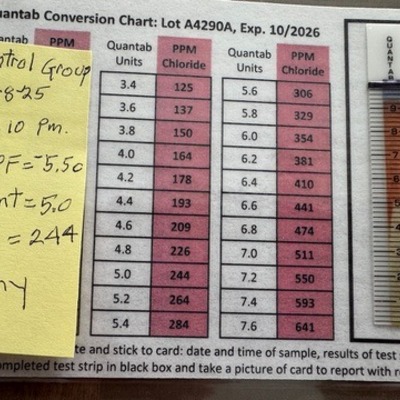 uantab Conversion Chart: Lot A4290A, Exp. 10/2026
ntab PPM
Quantab Units PPM Chloride
3.4 125
3.6 137
3.8 150
4.0 164
4.2 178
4.4 193
4.6 209
4.8 226
5.0 244
5.2 264
5.4 284
Quantab Units PPM Chloride
5.6 306
5.8 329
6.0 354
6.2 381
6.4 410
6.6 441
6.8 474
7.0 511
7.2 550
7.4 593
7.6 641
ntrol Group
-8-25
10 pm.
PF=-5.50
nt=5.0
= 244
ny
QUANTAB
te and stick to card: date and time of sample, results of test
ompleted test strip in black box and take a picture of card to report with r